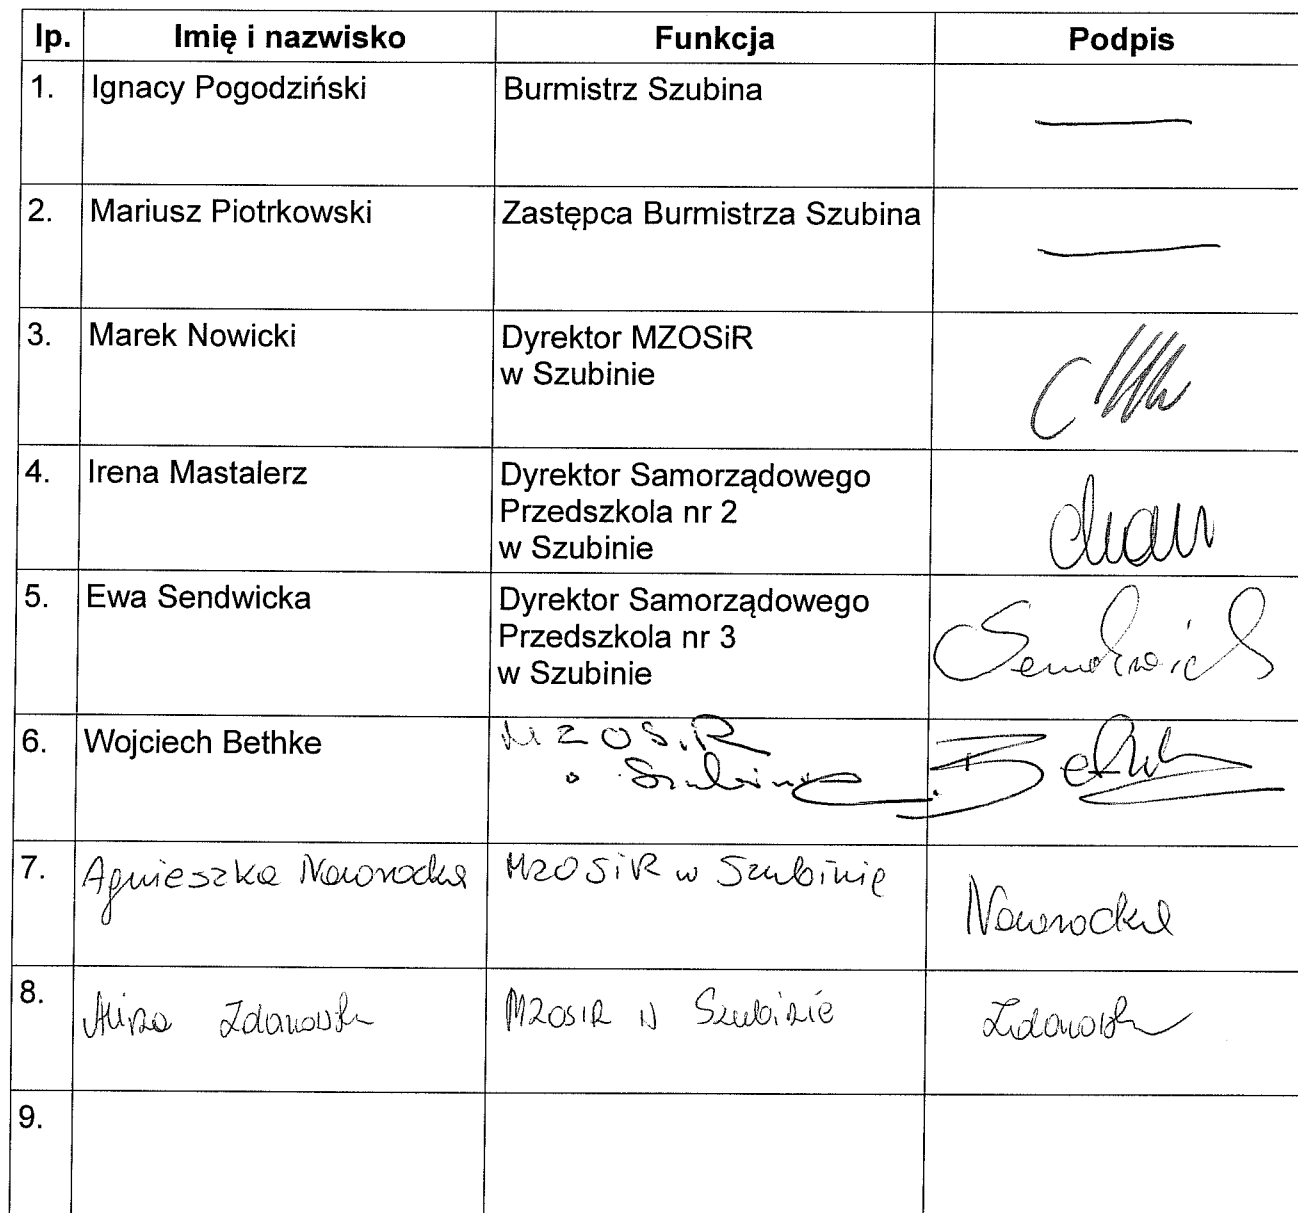 lp. Imię i nazwisko Funkcja Podpis
1. Ignacy Pogodziński Burmistrz Szubina
2. Mariusz Piotrkowski Zastępca Burmistrza Szubina
3. Marek Nowicki Dyrektor MZOSiR
w Szubinie
4. Irena Mastalerz Dyrektor Samorządowego
Przedszkola nr 2
w Szubinie
5. Ewa Sendwicka Dyrektor Samorządowego
Przedszkola nr 3
w Szubinie
6. Wojciech Bethke MZOSiR
Szubinie
7. Agnieszka Nawrocka MZOSiR w Szubinie Nawrocka
8. Zdanowska MZOSiR w Szubinie Zdanowska
9.